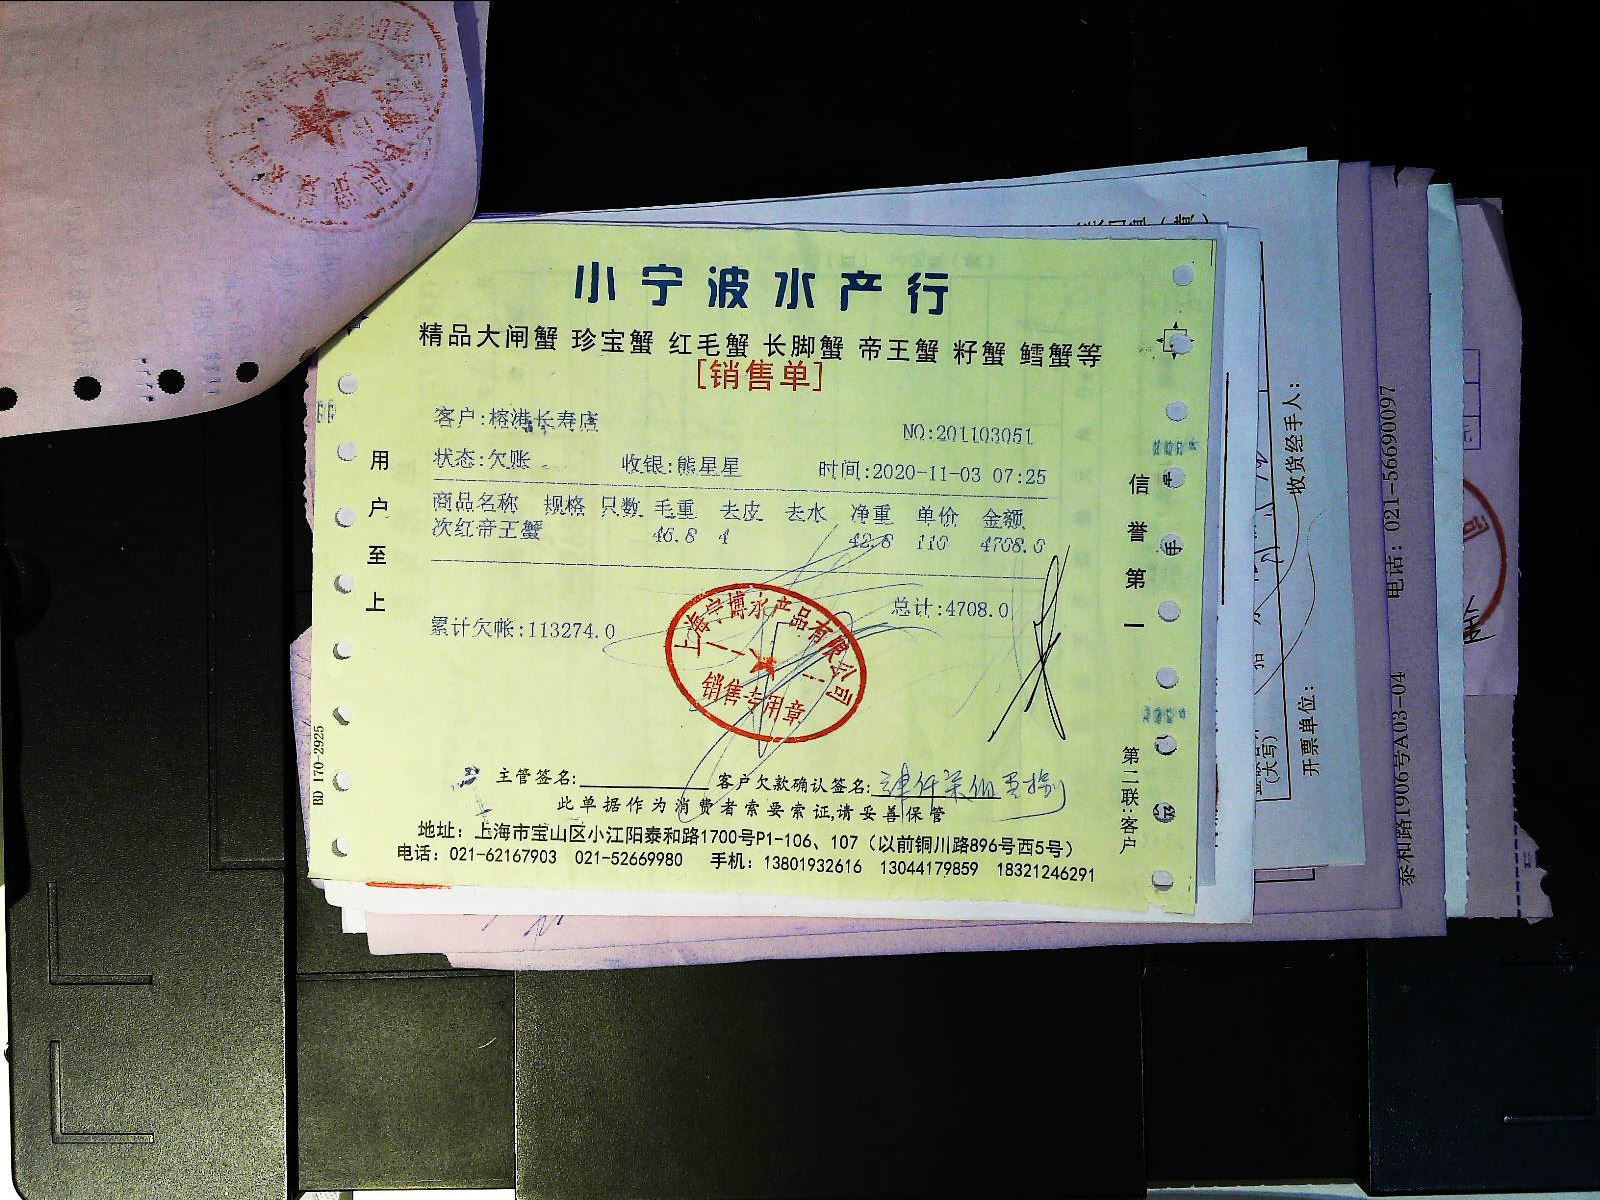 小宁波水产行
精品大闸蟹 珍宝蟹 红毛蟹 长脚蟹 帝王蟹 籽蟹 鳕蟹等
[销售单]
客户:榕港长寿店
NO:201103051
状态:欠账 收银:熊星星 时间:2020-11-03 07:25
商品名称 规格 只数 毛重 去皮 去水 净重 单价 金额
次红帝王蟹 46.8 4 42.8 110 4708.0
总计:4708.0
累计欠帐:113274.0
上海宁博水产品有限公司
销售专用章
主管签名: 客户欠款确认签名:
此单据作为消费者索要索证,请妥善保管
地址：上海市宝山区小江阳泰和路1700号P1-106、107（以前铜川路896号西5号）
电话：021-62167903 021-52669980 手机：13801932616 13044179859 18321246291
用户至上
信誉第一
第二联:客户
BD 170-2925
收货经手人：
开票单位：
(大写)
电话：021-56690097
泰和路1906号A03-04